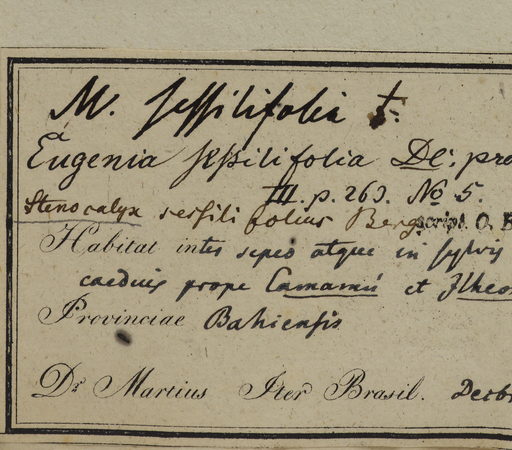 M. sessilifolia †.
Eugenia sessilifolia De: pro
III. p. 263. No 5.
Stenocalyx sessilifolius Berg script. O. B
Habitat in sepes atque in sylvis
caeduis prope Camamú et Ilheos
Provinciae Bahiensis
Dr Martius Iter Brasil. Decbr